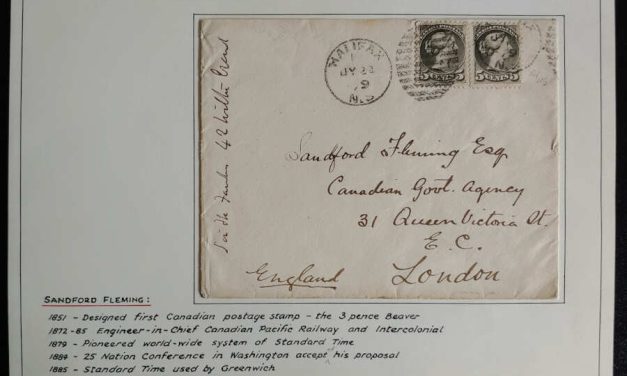 HALIFAX
JY 22
79
N.S
5 CENTS 5
5 CENTS 5
Sandford Fleming Esq
Canadian Govt. Agency
31 Queen Victoria St.
E. C.
London
England
SANDFORD FLEMING:
1851 - Designed first Canadian postage stamp - the 3 pence Beaver
1872-85 Engineer-in-Chief Canadian Pacific Railway and Intercolonial
1879 - Pioneered world-wide system of Standard Time
1884 - 25 Nation Conference in Washington accept his proposal
1885 - Standard Time used by Greenwich